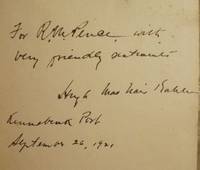 For R. M. Pease, with
very friendly sentiments
Hugh MacNair Kahler
Kennebunk Port
September 26, 1921